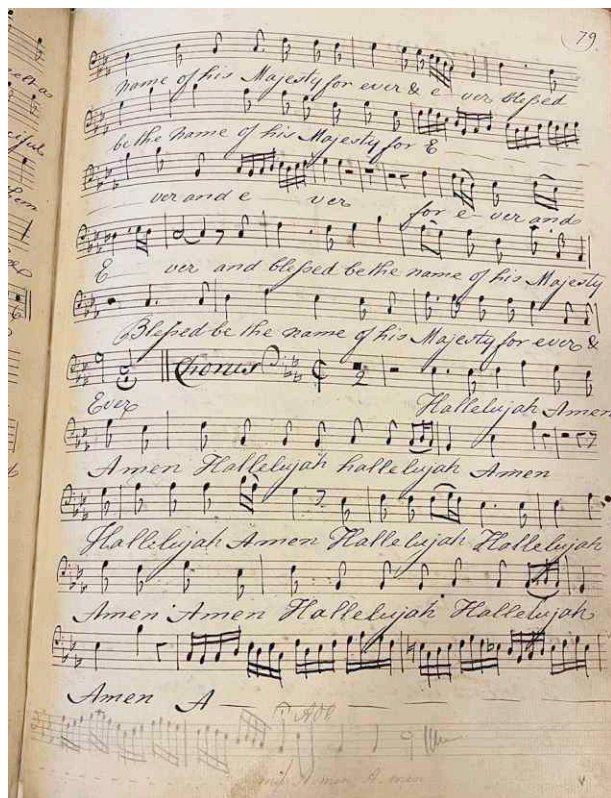 79
name of his Majesty for ever & e ver blessed
be the name of his Majesty for E
ver and e ver for e-ver and
E ver and blessed be the name of his Majesty
Blessed be the name of his Majesty for ever &
Ever Chorus 2 Hallelujah Amen
Amen Hallelujah hallelujah Amen
Hallelujah Amen Hallelujah Hallelujah
Amen Amen Hallelujah Hallelujah
Amen A
men A men